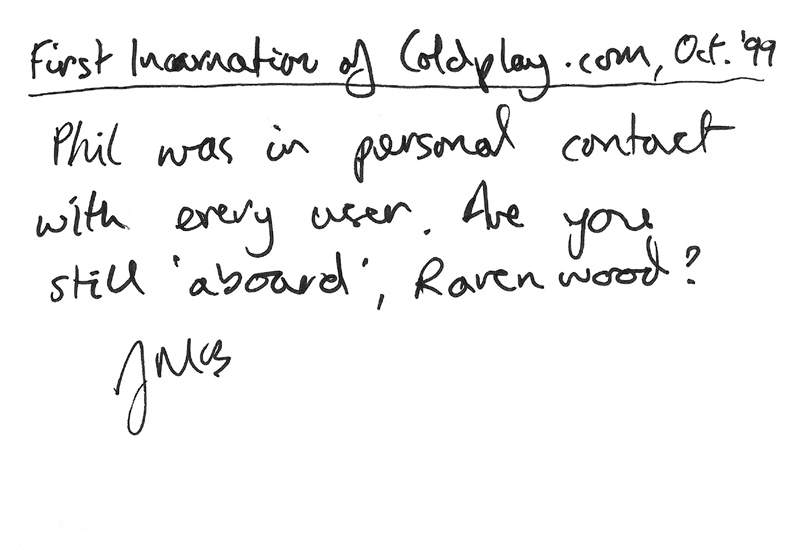 First Incarnation of Coldplay.com, Oct. '99
Phil was in personal contact
with every user. Are you
still 'aboard', Ravenwood?
JMcB